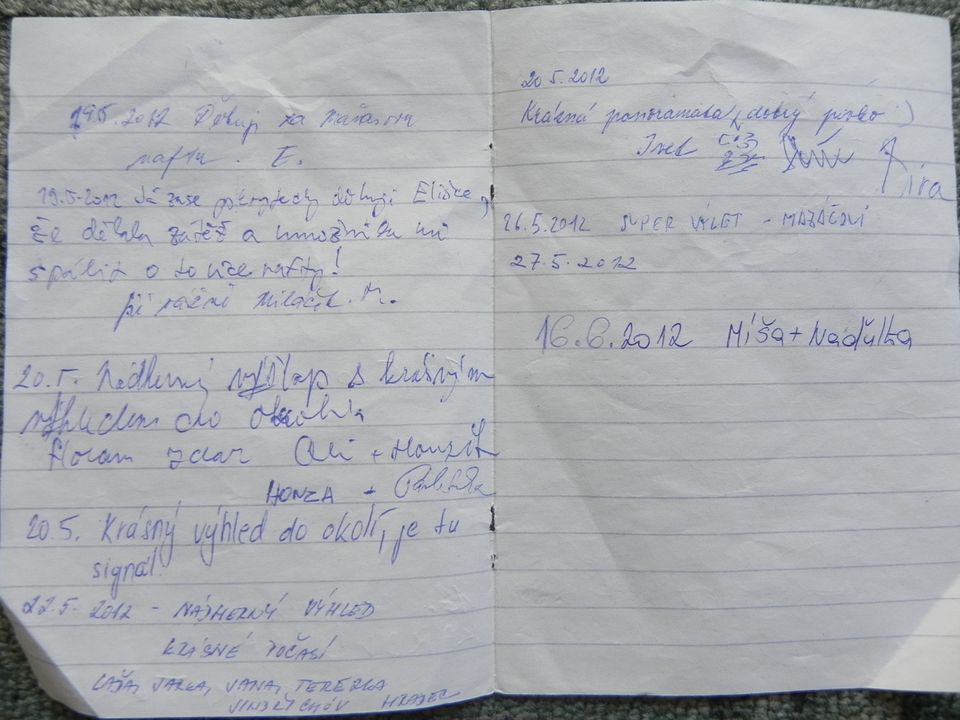 19.5.2012 Děkuji za
naftu. E.
19.5.2012 Já zase děkuji Elišce,
že dělala zátěž a umožnila mi
spálit o to více nafty!
Miláčik. M.
20.5. Nádherný výšlap s krásným
výhledem do okolí
Horám zdar Oli + Honzík
HONZA +
20.5. Krásný výhled do okolí, je tu
signál.
22.5. 2012 - NÁDHERNÝ VÝHLED
KRÁSNÉ POČASÍ
JARKA, JANA, TEREZKA
JINDŘICHŮV HRADEC
20.5.2012
Krásná panoramata, dobrý pivko :)
Jíra
26.5.2012 SUPER VÝLET - MAZÁČOVI
27.5.2012
16.6.2012 Míša + Naďulka